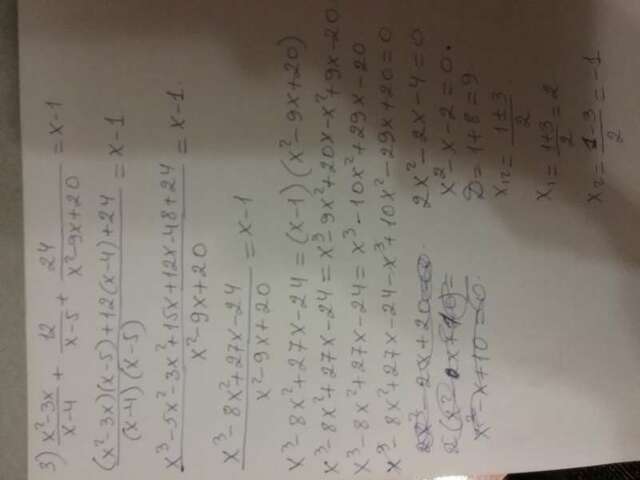 3) (x²-3x)/(x-4) + 12/(x-5) + 24/(x²-9x+20) = x-1
((x²-3x)(x-5)+12(x-4)+24)/((x-4)(x-5)) = x-1
(x³-5x²-3x²+15x+12x-48+24)/(x²-9x+20) = x-1
(x³-8x²+27x-24)/(x²-9x+20) = x-1
x³-8x²+27x-24 = (x-1)(x²-9x+20)
x³-8x²+27x-24 = x³-9x²+20x-x²+9x-20
x³-8x²+27x-24 = x³-10x²+29x-20
x³-8x²+27x-24-x³+10x²-29x+20=0
x²-x+10=0
2x²-2x-4=0
x²-x-2=0.
D=1+8=9
x₁₂= (1±3)/2
x₁= (1+3)/2 = 2
x₂= (1-3)/2 = -1